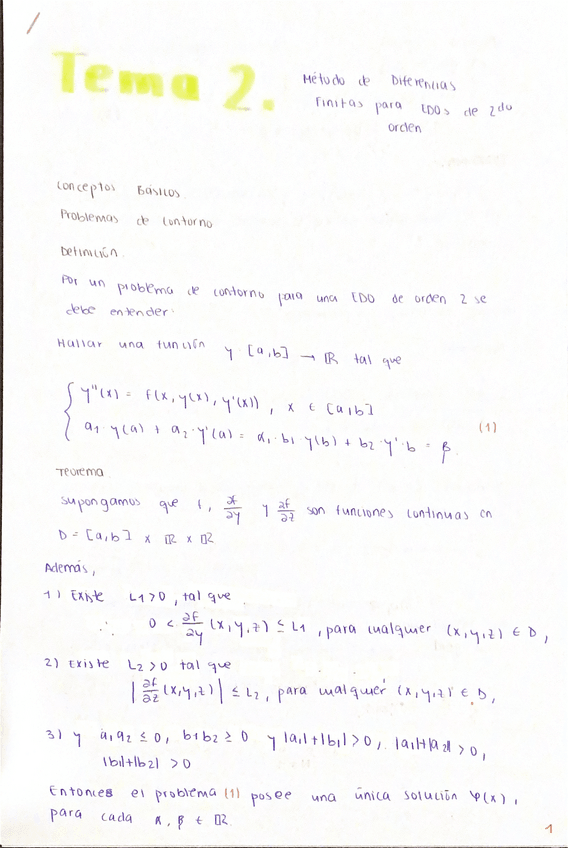 Tema 2. Método de Diferencias
Finitas para EDOs de 2do
orden
Conceptos Básicos.
Problemas de Contorno
Definición.
Por un problema de contorno para una EDO de orden 2 se
debe entender:
Hallar una función y [a,b] → ℝ tal que
{ y''(x) = f(x, y(x), y'(x)), x ∈ [a,b]
a₁·y(a) + a₂·y'(a) = α, b₁·y(b) + b₂·y'·b = β. (1)
Teorema
Supongamos que f, ∂f/∂y y ∂f/∂z son funciones continuas en
D = [a,b] x ℝ x ℝ
Además,
1) Existe L1>0, tal que
∴ 0 < ∂f/∂y (x,y,z) ≤ L1, para cualquier (x,y,z) ∈ D,
2) Existe L2>0 tal que
|∂f/∂z (x,y,z)| ≤ L2, para cualquier (x,y,z) ∈ D,
3) y a₁a₂ ≤ 0, b1b2 ≥ 0 y |a₁|+|b₁|>0, |a₁|+|a₂|>0,
|b₁|+|b2| >0
Entonces el problema (1) posee una única solución φ(x),
para cada α, β ∈ ℝ.
1